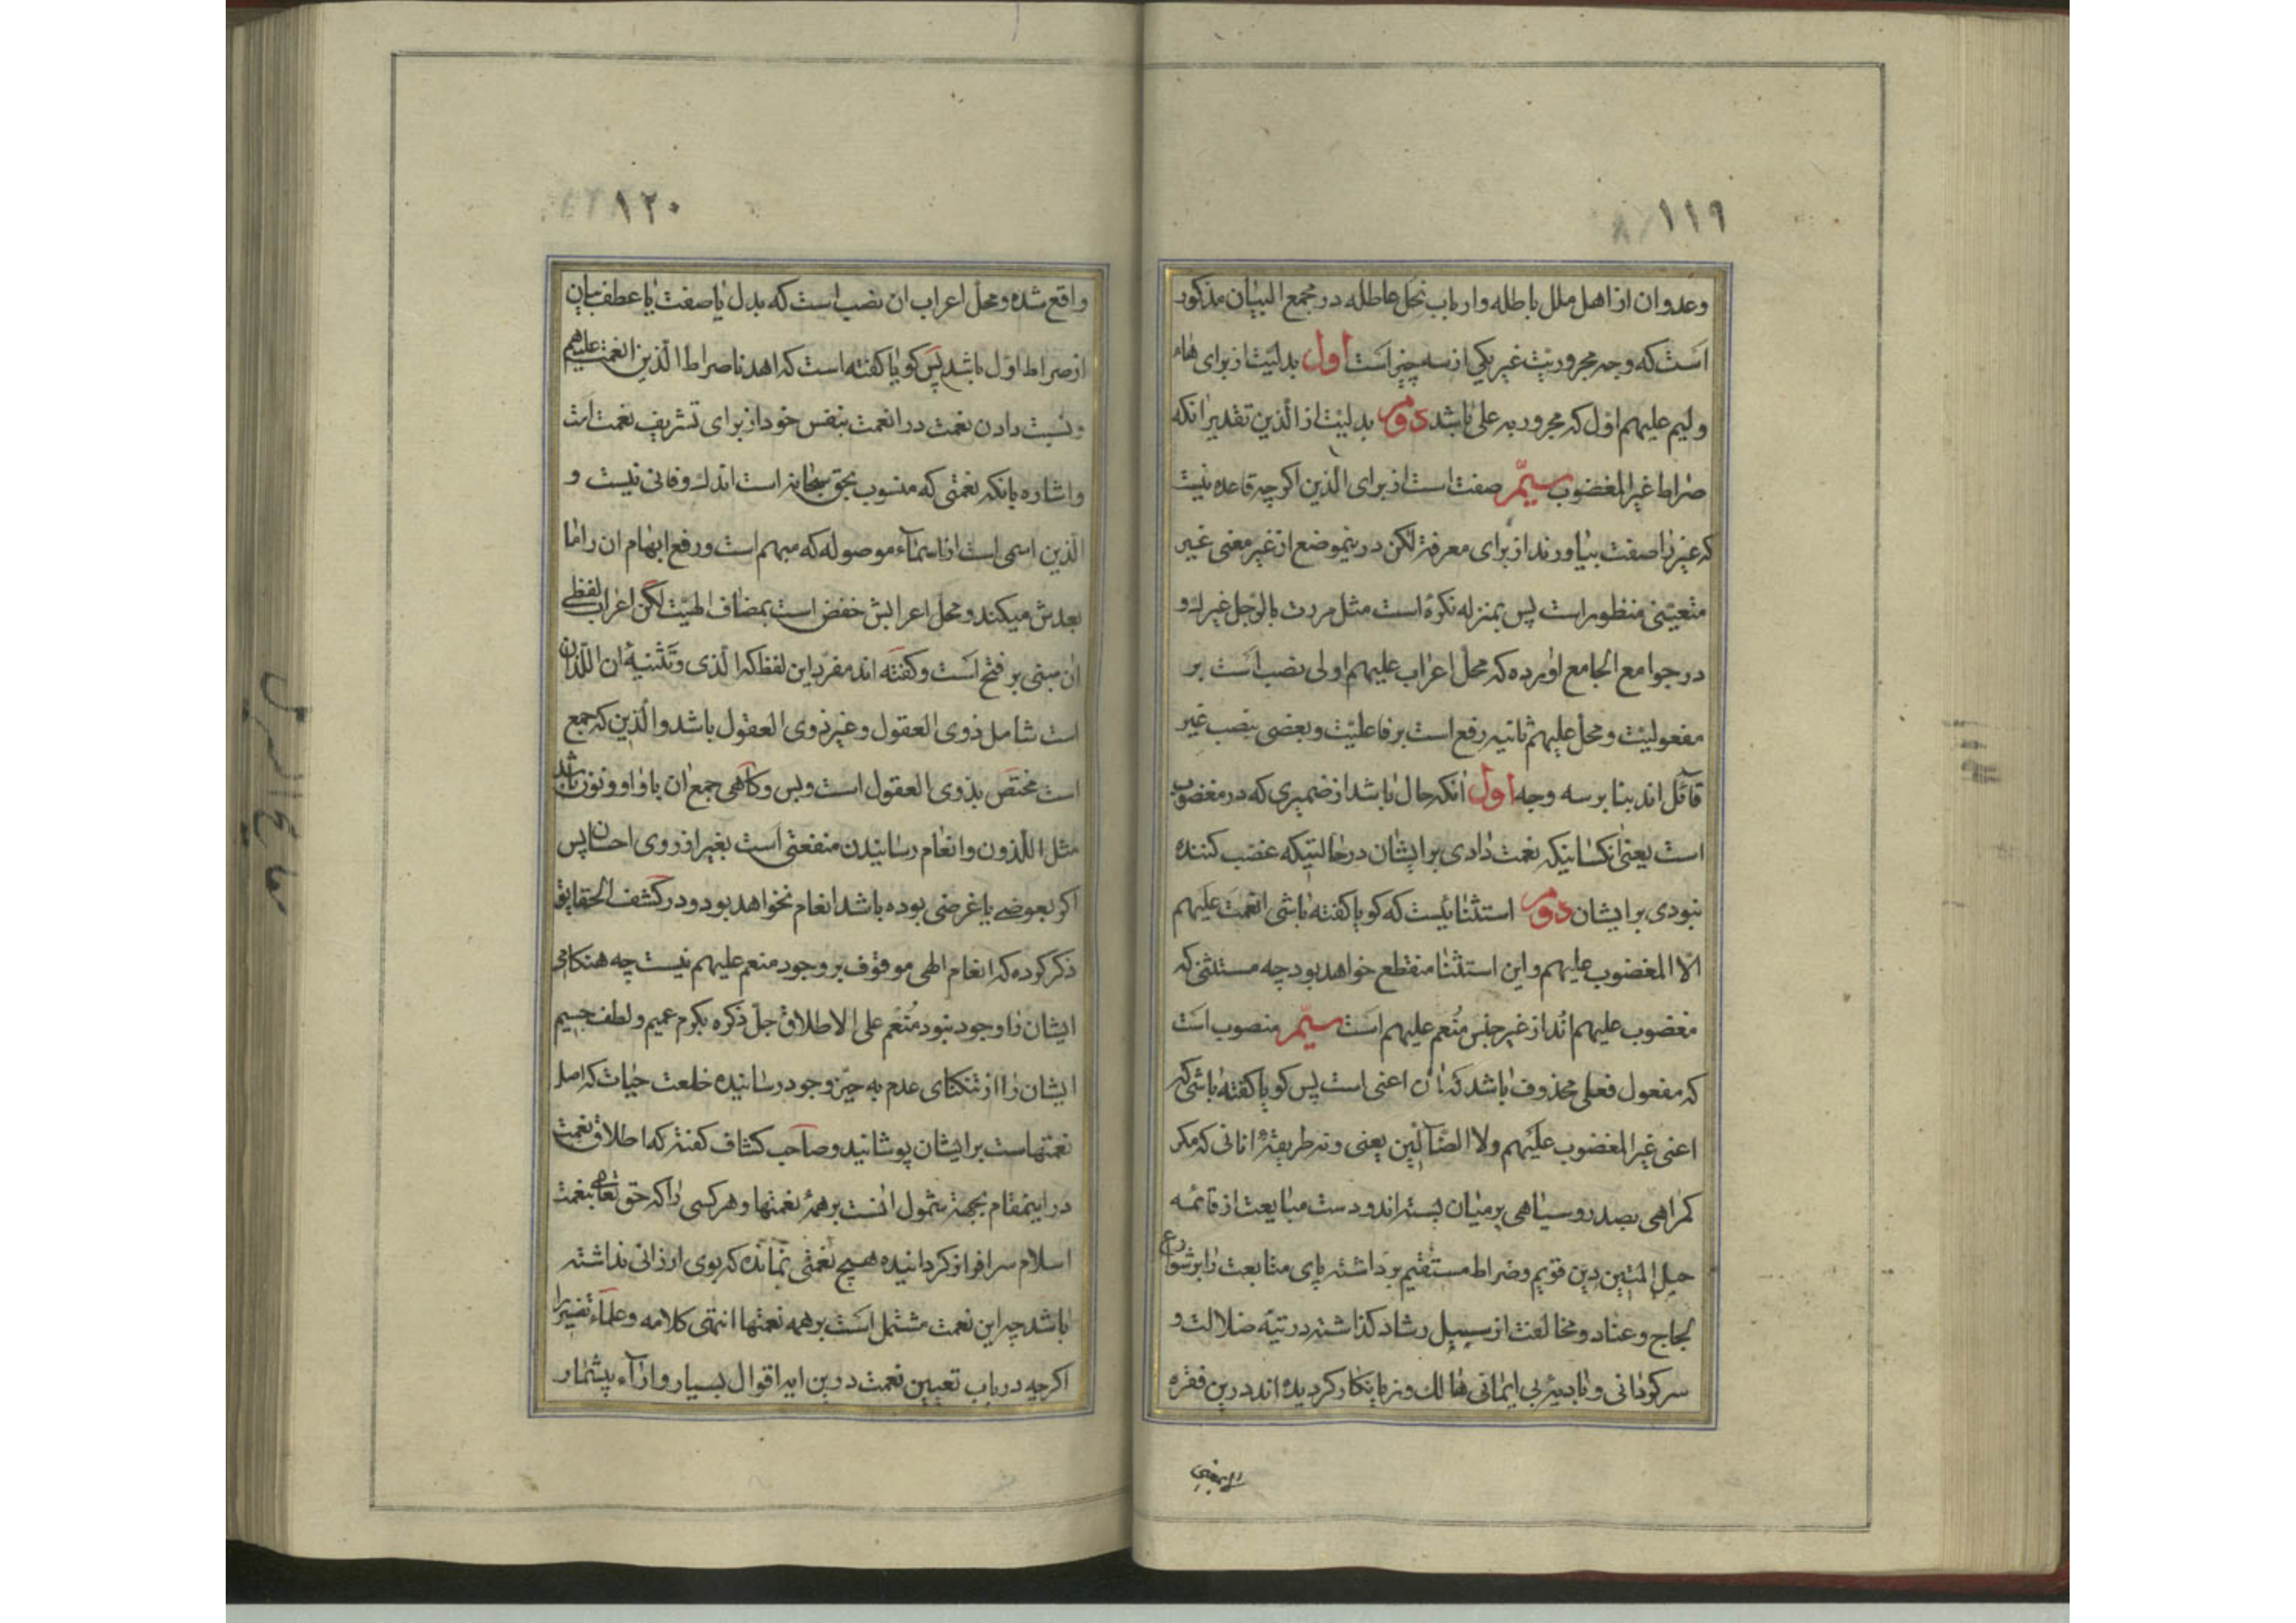 ١١٩
وعدوان از اهل ملل باطله وارباب نحل عاطله در مجمع البیان مذکور
است که وجه مجروریت غیر یکی از سه چیز است اول بدلیت از برای هاء
ولیم علیهم اول که مجرور به علی باشد دوم بدلیت از الذین تقدیر انکه
صراط غیر المغضوب سیّم صفت است از برای الذین اکرچه قاعده نیست
که غیر را صفت بیاورند از برای معرفه لکن درینموضع از غیر معنی غیر
متعینی منظور است پس بمنزله نکره است مثل مررت بالرجل غیرك و
در جوامع الجامع اورده که محل اعراب علیهم اولی نصب است بر
مفعولیت و محل علیهم ثانیه رفع است بر فاعلیت و بعضی بنصب غیر
قائل اند بنا بر سه وجه اول انکه حال باشد از ضمیری که در مغضوب
است یعنی انکسانیکه نعمت دادی بر ایشان در حالتیکه غضب کننده
نبودی بر ایشان دوم استثنائیست که کویا کفته باشی انعمت علیهم
الّا المغضوب علیهم و این استثنا منقطع خواهد بود چه مستثنی که
مغضوب علیهم اند از غیر جنس منعم علیهم است سیّم منصوب است
که مفعول فعلی محذوف باشد که ان اعنی است پس کویا کفته باشی که
اعنی غیر المغضوب علیهم ولا الضّآلّین یعنی و نه طریقهٔ انانی که مکر
کمراهی بصد روسیاهی بر میان بسته اند و دست مبایعت از قائمه
حبل المتین دین قویم و صراط مستقیم برداشته پای متابعت را بر شوارع
لجاج و عناد و مخالفت از سبیل رشاد کذاشته در تیه ضلالت و
سرکردانی و بادیهٔ بی ایمانی هالك و زیانکار کردیده اند درین فقره
١٢٠
واقع شده و محل اعراب ان نصب است که بدل یا صفت یا عطف بیان
از صراط اول باشد پس کویا کفته است که اهدنا صراط الّذین انعمت علیهم
و نسبت دادن نعمت در انعمت بنفس خود از برای تشریف نعمت است
و اشاره بانکه نعمتی که منسوب بحق سبحانه است اندك و فانی نیست و
الّذین اسمی است از اسمآء موصوله که مبهم است و رفع ابهام ان را ما
بعدش میکند و محل اعرابش خفض است بمضاف الهیت لکن اعراب لفظی
ان مبنی بر فتح است و کفته اند مفرد این لفظ که الّذی و تثنیهٔ ان اللّذان
است شامل ذوی العقول و غیر ذوی العقول باشد و الّذین که جمع
است مختص بذوی العقول است و بس و کاهی جمع ان با واو و نون باشد
مثل اللّذون و انعام رسانیدن منفعتی است بغیر از روی احسان پس
اکر بعوضی یا غرضی بوده باشد انعام نخواهد بود و در کشف الحقایق
ذکر کرده که انعام الهی موقوف بر وجود منعم علیهم نیست چه هنکامی
ایشان را وجود نبود منعم علی الاطلاق جل ذکره بکرم عمیم و لطف جسیم
ایشان را از تنکنای عدم به حیّز وجود رسانیده خلعت حیات که اصل
نعمتهاست بر ایشان پوشانید و صاحب کشاف کفته که اطلاق نعمت
در اینمقام بجهة شمول انست بر همهٔ نعمتها و هر کسی را که حق تعالی بنعمت
اسلام سرافراز کردانیده هیچ نعمتی نمانده که بوی ارزانی نداشته
باشد چه این نعمت مشتمل است بر همه نعمتها انتهی کلامه و علمآء تفسیر را
اکرچه در باب تعیین نعمت درین ایه اقوال بسیار و ارآء بیشمار